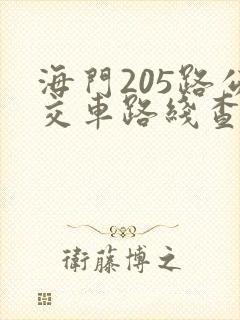 海門205路公
交車路綫查
衛藤博之